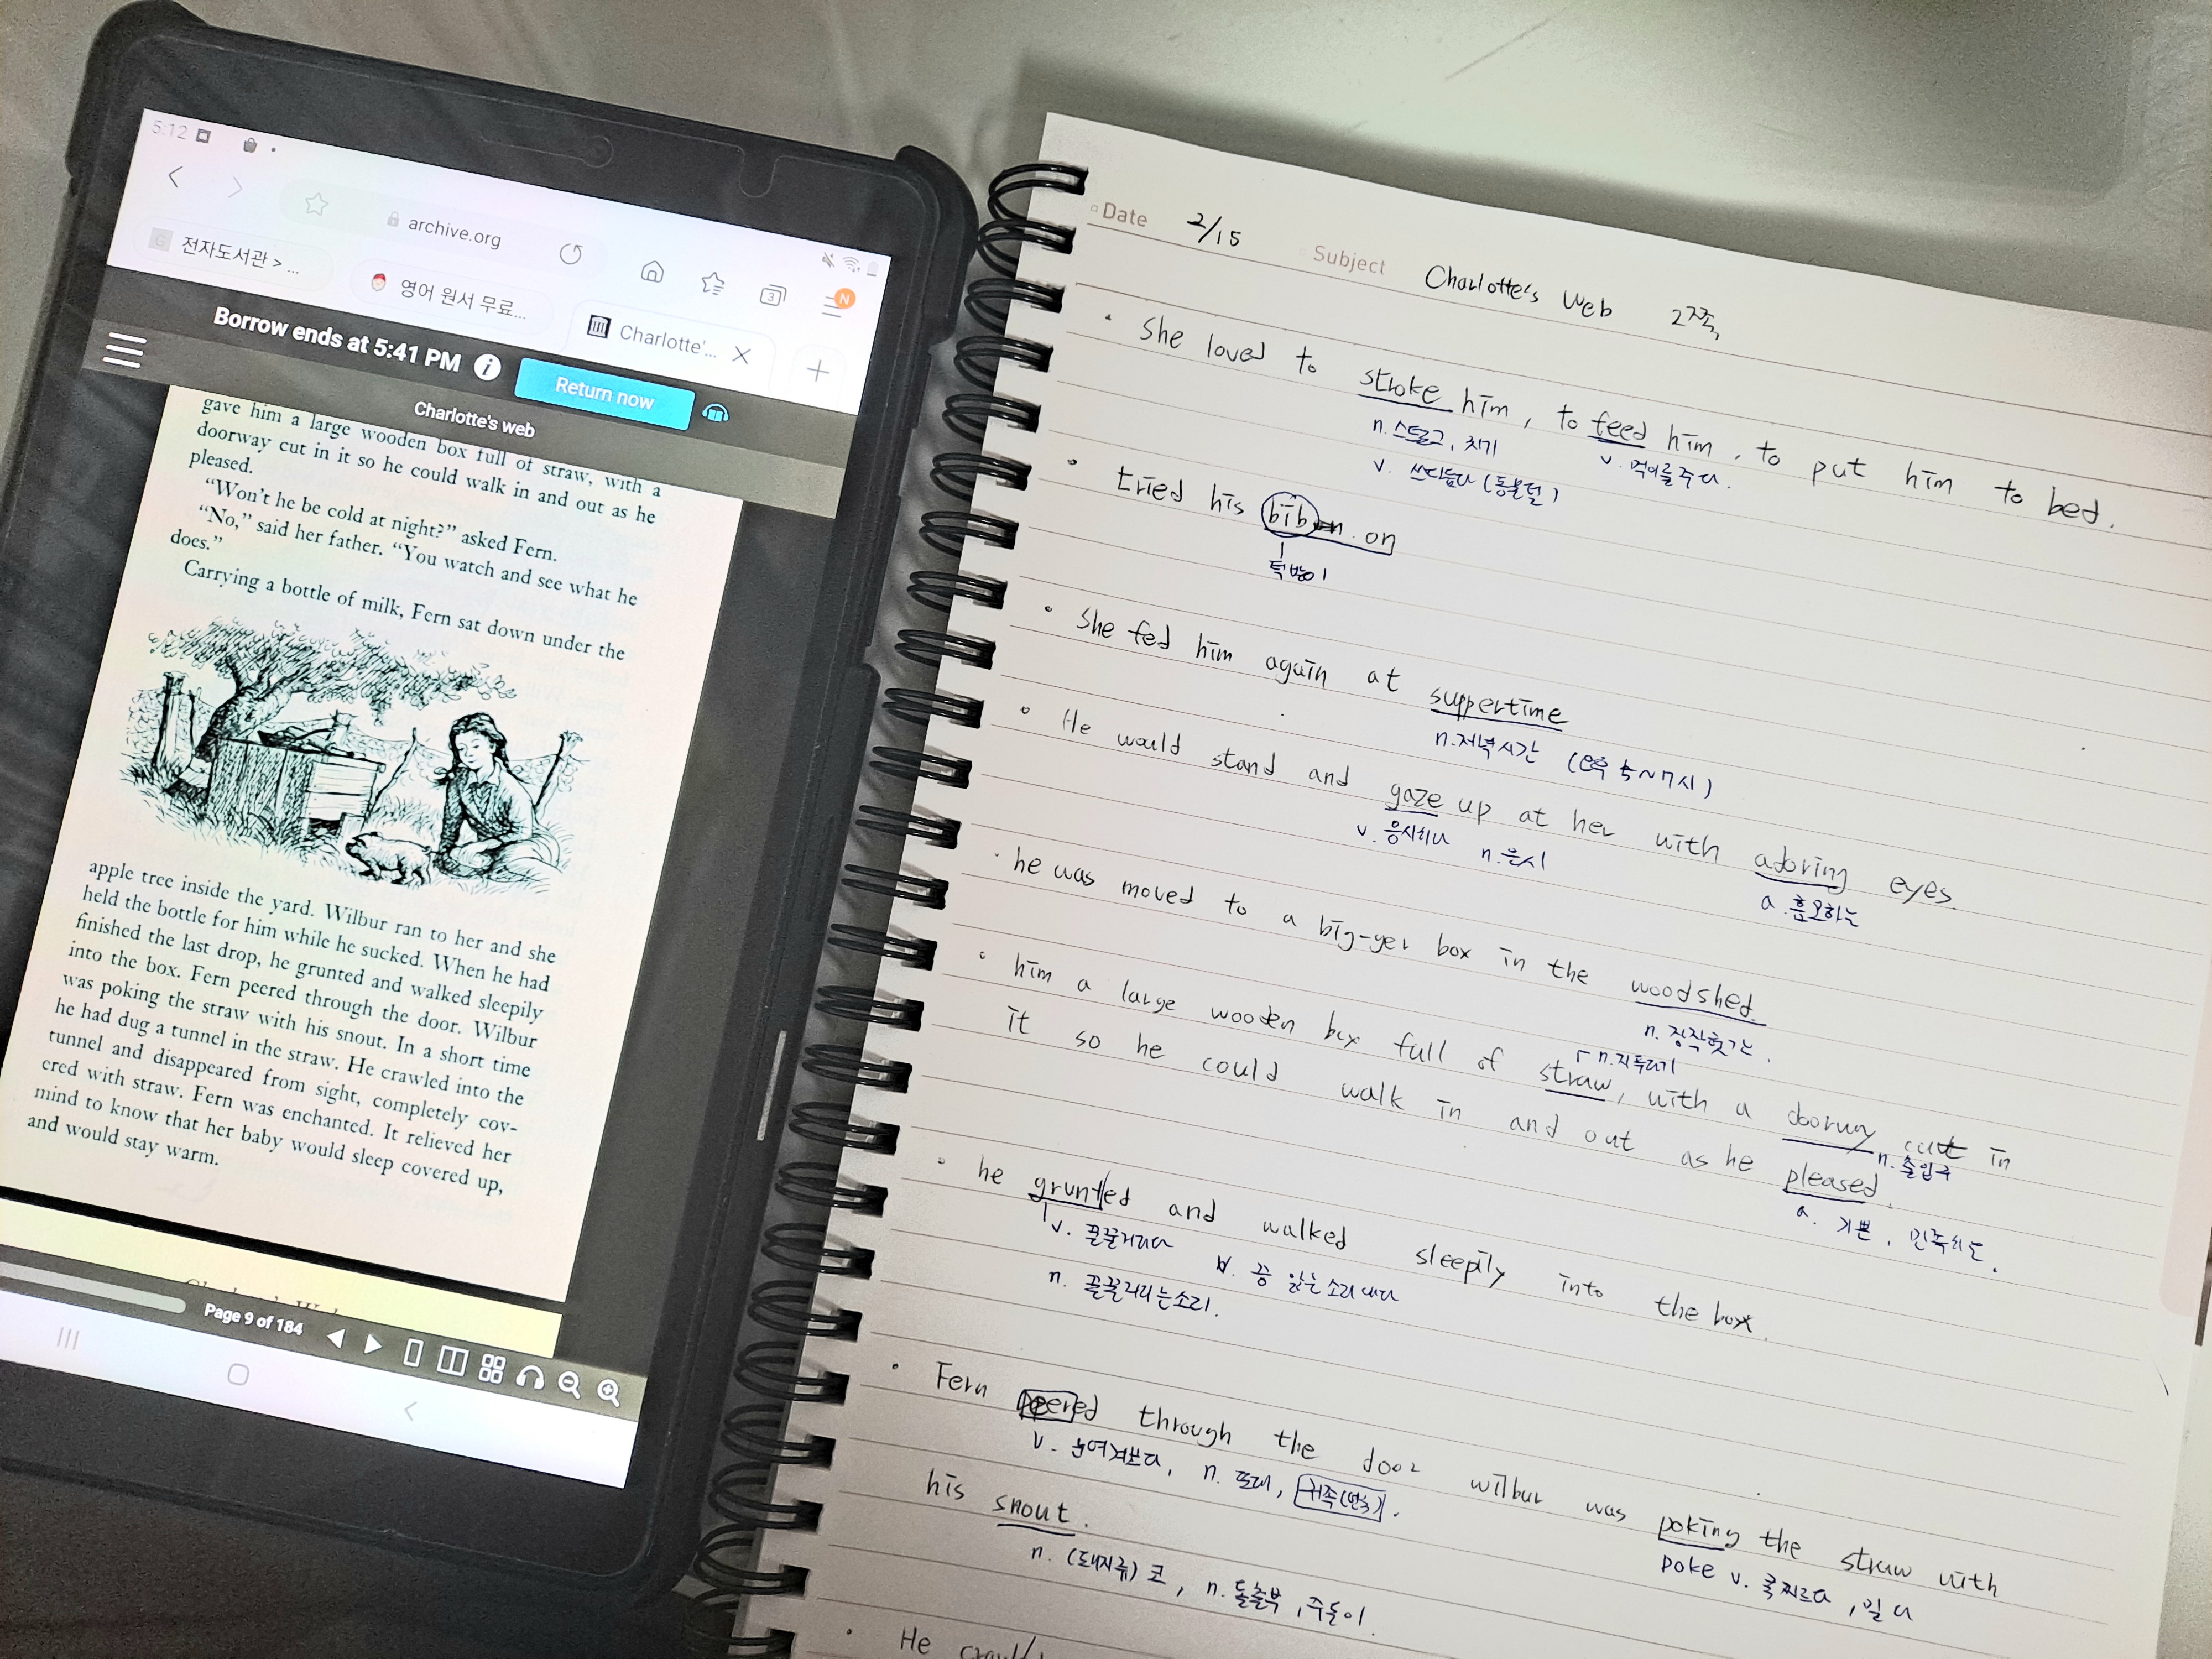 5:12
archive.org
전자도서관 > ...
영어 원서 무료...
Charlotte'...
3
N
Borrow ends at 5:41 PM
Return now
Charlotte's web
gave him a large wooden box full of straw, with a
doorway cut in it so he could walk in and out as he
pleased.
"Won't he be cold at night?" asked Fern.
"No," said her father. "You watch and see what he
does."
Carrying a bottle of milk, Fern sat down under the
apple tree inside the yard. Wilbur ran to her and she
held the bottle for him while he sucked. When he had
finished the last drop, he grunted and walked sleepily
into the box. Fern peered through the door. Wilbur
was poking the straw with his snout. In a short time
he had dug a tunnel in the straw. He crawled into the
tunnel and disappeared from sight, completely cov-
ered with straw. Fern was enchanted. It relieved her
mind to know that her baby would sleep covered up,
and would stay warm.
Page 9 of 184
Date 2/15 Subject Charlotte's Web 2쪽
• She loved to stroke him, to feed him, to put him to bed.
n. 스트로크, 치기
v. 쓰다듬다 (동물털) v. 먹이를주다.
• tried his bib on
턱받이
• She fed him again at suppertime
n. 저녁시간 (오후 5~7시)
• He would stand and gaze up at her with adoring eyes.
v. 응시하다 n. 응시
a. 흠모하는
• he was moved to a big-ger box in the woodshed.
n. 장작헛간.
• him a large wooden box full of straw, with a doorway cut in
n. 지푸라기
n. 출입구
it so he could walk in and out as he pleased.
a. 기쁜, 만족하는.
• he grunted and walked sleepily into the box.
v. 꿀꿀거리다 v. 끙 앓는소리내다
n. 꿀꿀거리는소리.
• Fern peered through the door wilbur was poking the straw with
v. 눈여겨보다, n. 또래, 귀족(민족).
poke v. 쿡찌르다, 밀다
his snout.
n. (돼지류) 코, n. 돌출부, 주둥이.
• He